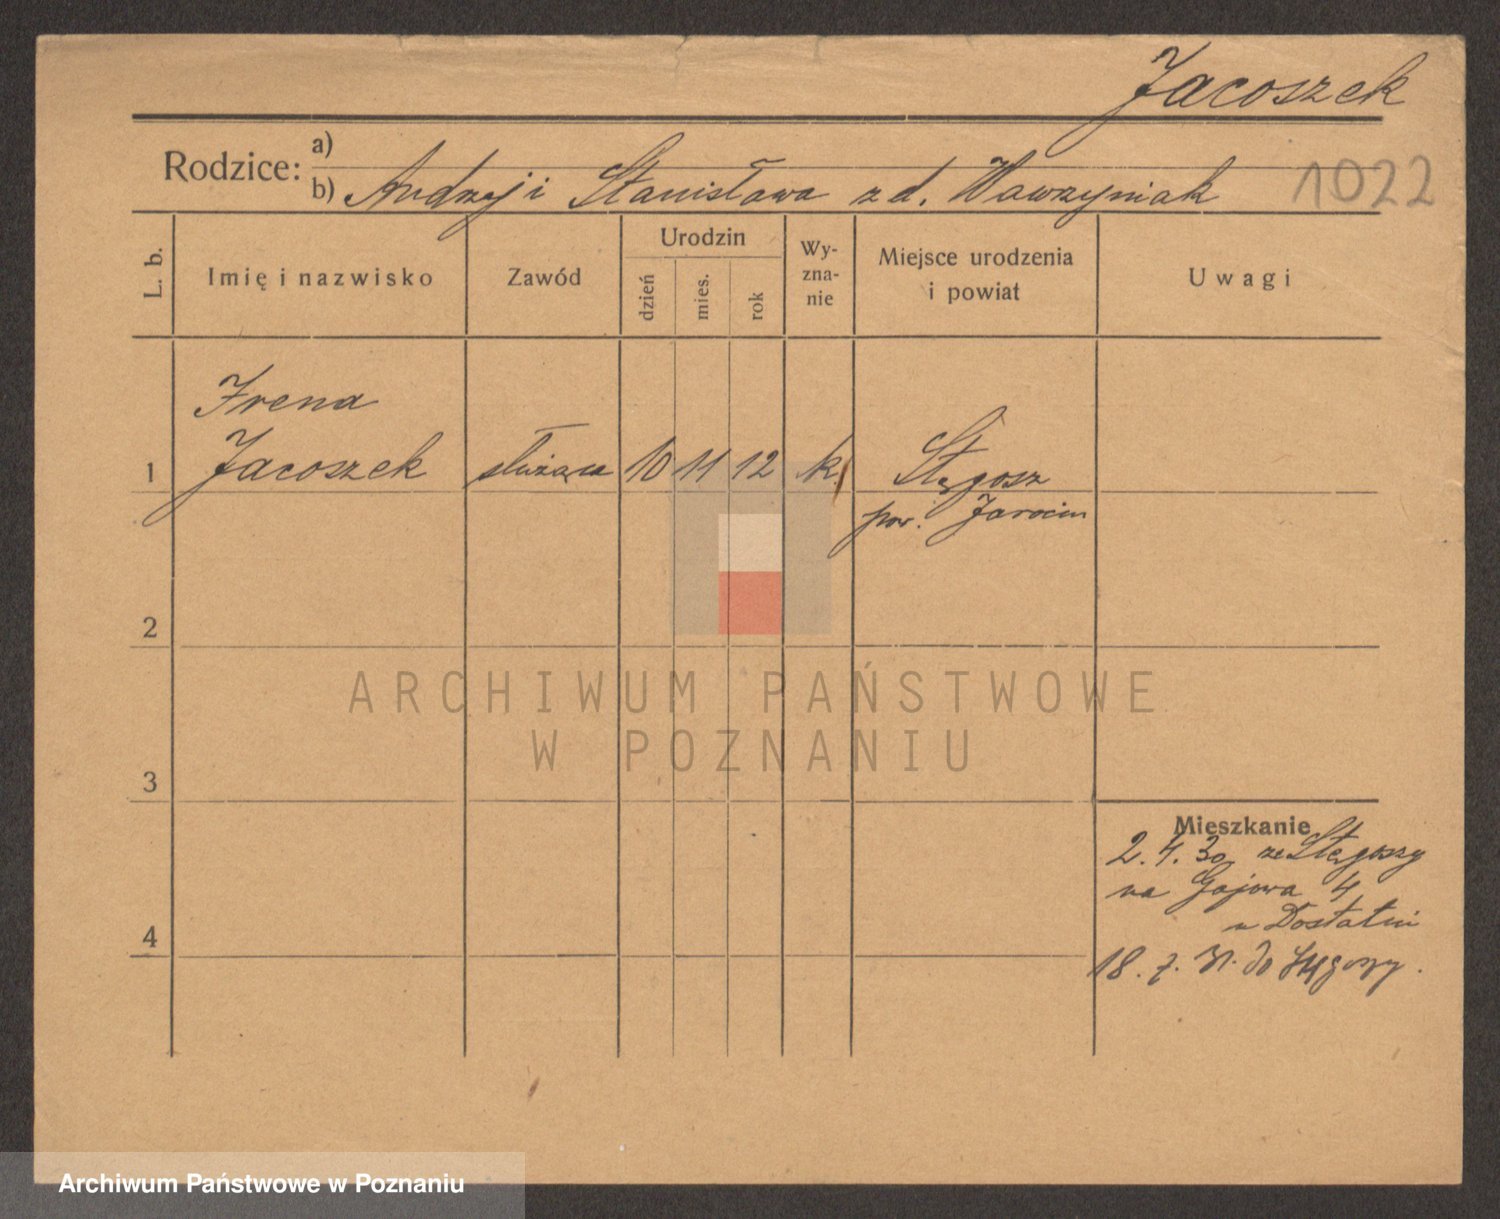 Jacoszek
Rodzice:
a)
b) Andrzej i Stanisława z d. Wawrzyniak
1022
L. b.
Imię i nazwisko
Zawód
Urodzin
dzień
mies.
rok
Wy-
zna-
nie
Miejsce urodzenia
i powiat
Uwagi
Irena
1 Jacoszek służąca 10 11 12 k. Stęgosz
pow. Jarocin
2
ARCHIWUM PAŃSTWOWE
W POZNANIU
3
Mieszkanie
2. 4. 30 ze Stęgoszy
na Gajowa 4
u
4
18. 7. 31. do
Archiwum Państwowe w Poznaniu